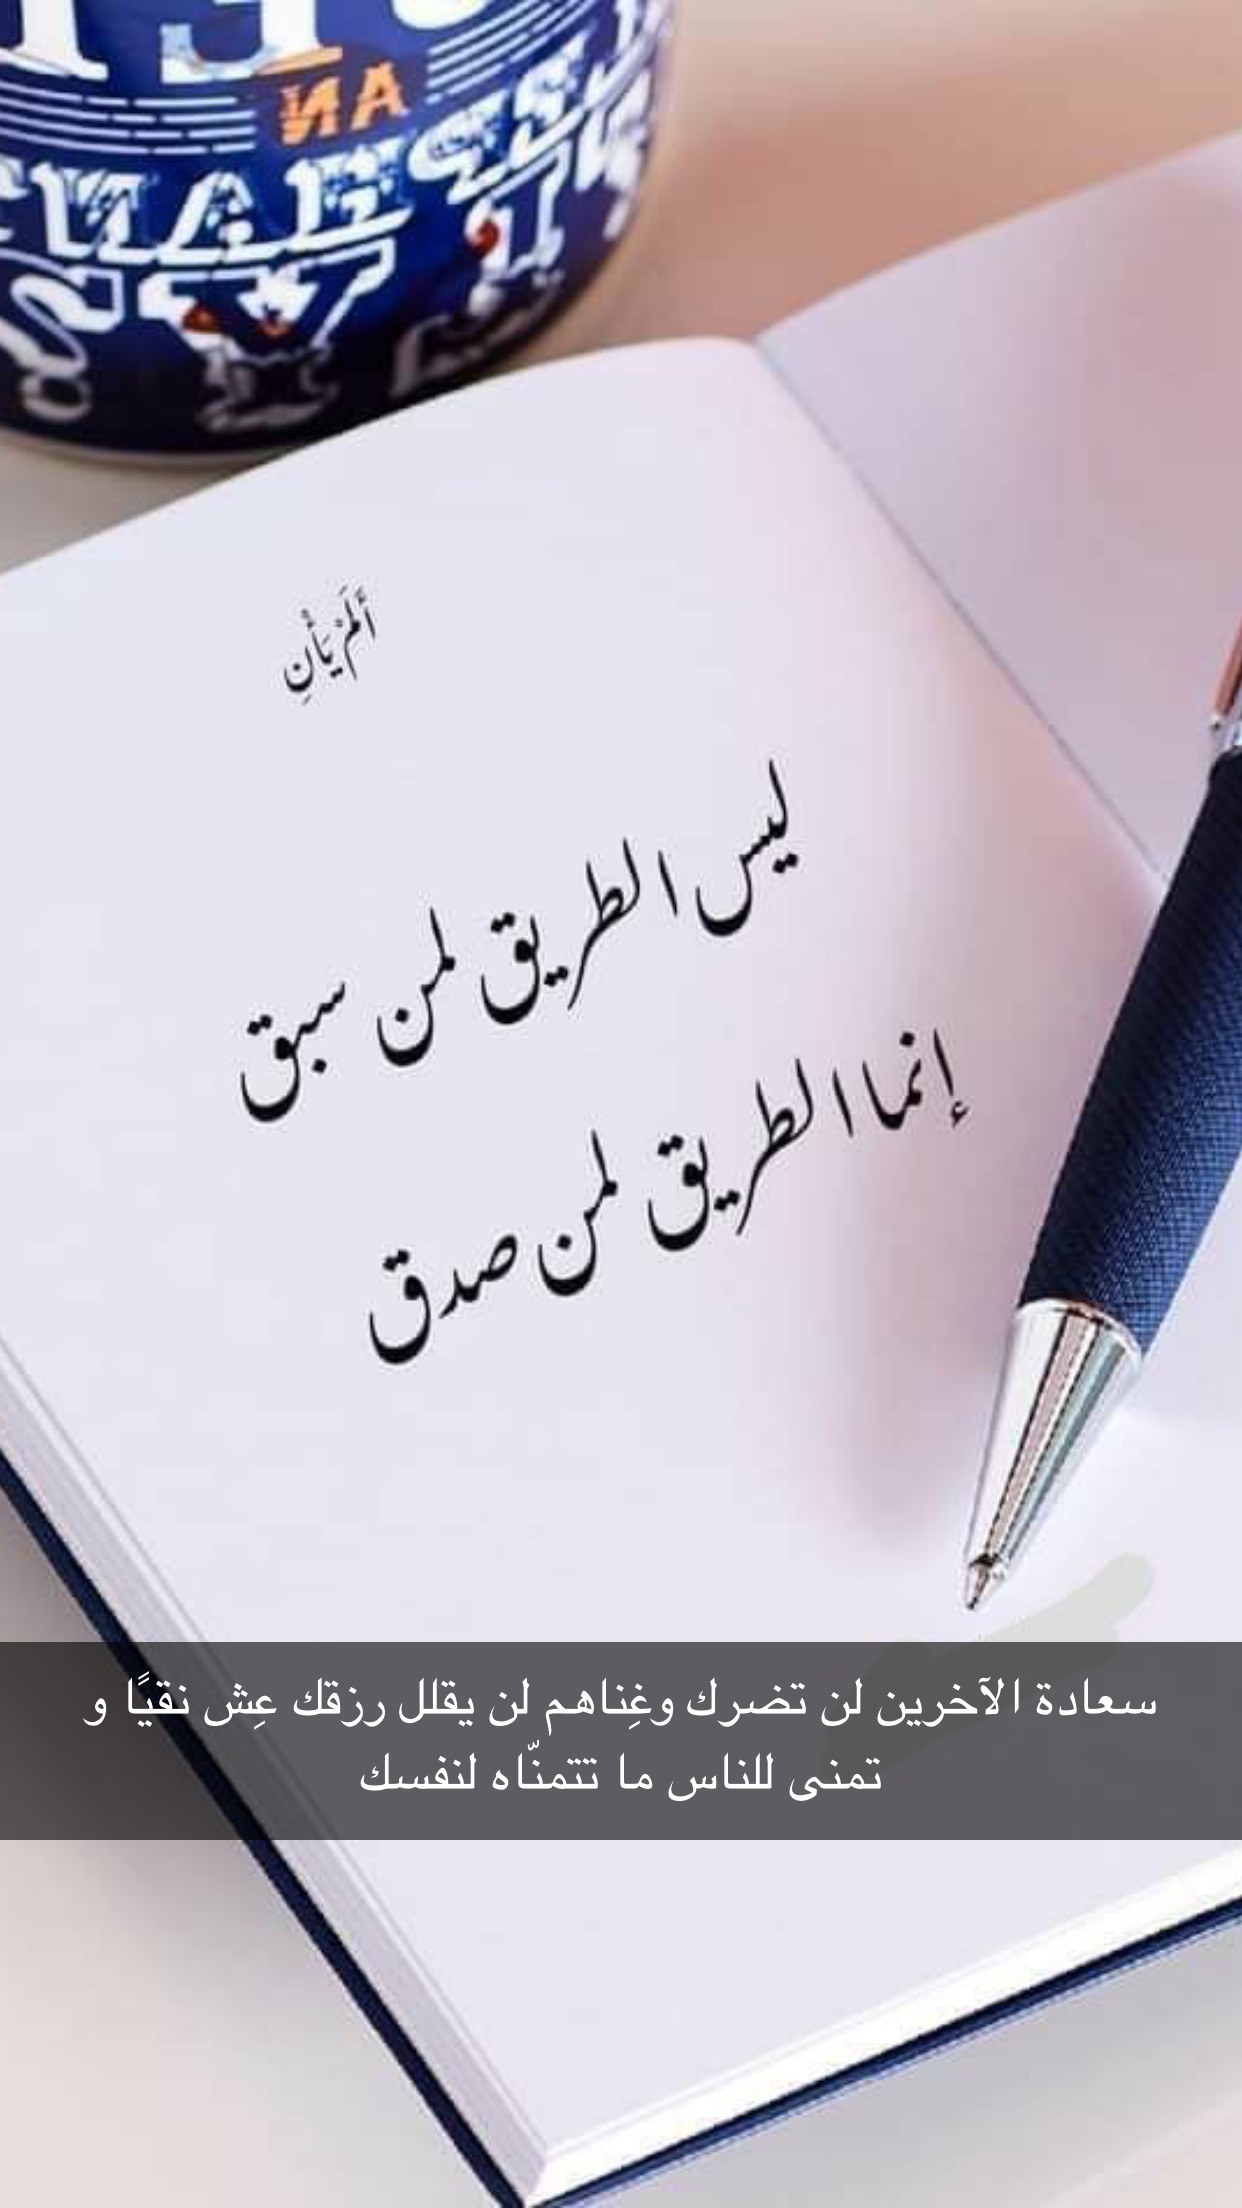 أَلَمْ يَأْنِ
ليس الطريق لمن سبق
إنما الطريق لمن صدق
سعادة الآخرين لن تضرك وغِناهم لن يقلل رزقك عِش نقيًا و
تمنى للناس ما تتمنّاه لنفسك